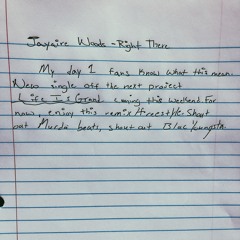 Jaymire Woods - Right There
My day 1 fans know what this mean.
New single off the next project
Life Is Grand coming this weekend. For
now, enjoy this remix/freestyle. Shout
out Murda beats, shout out Blac Youngsta.